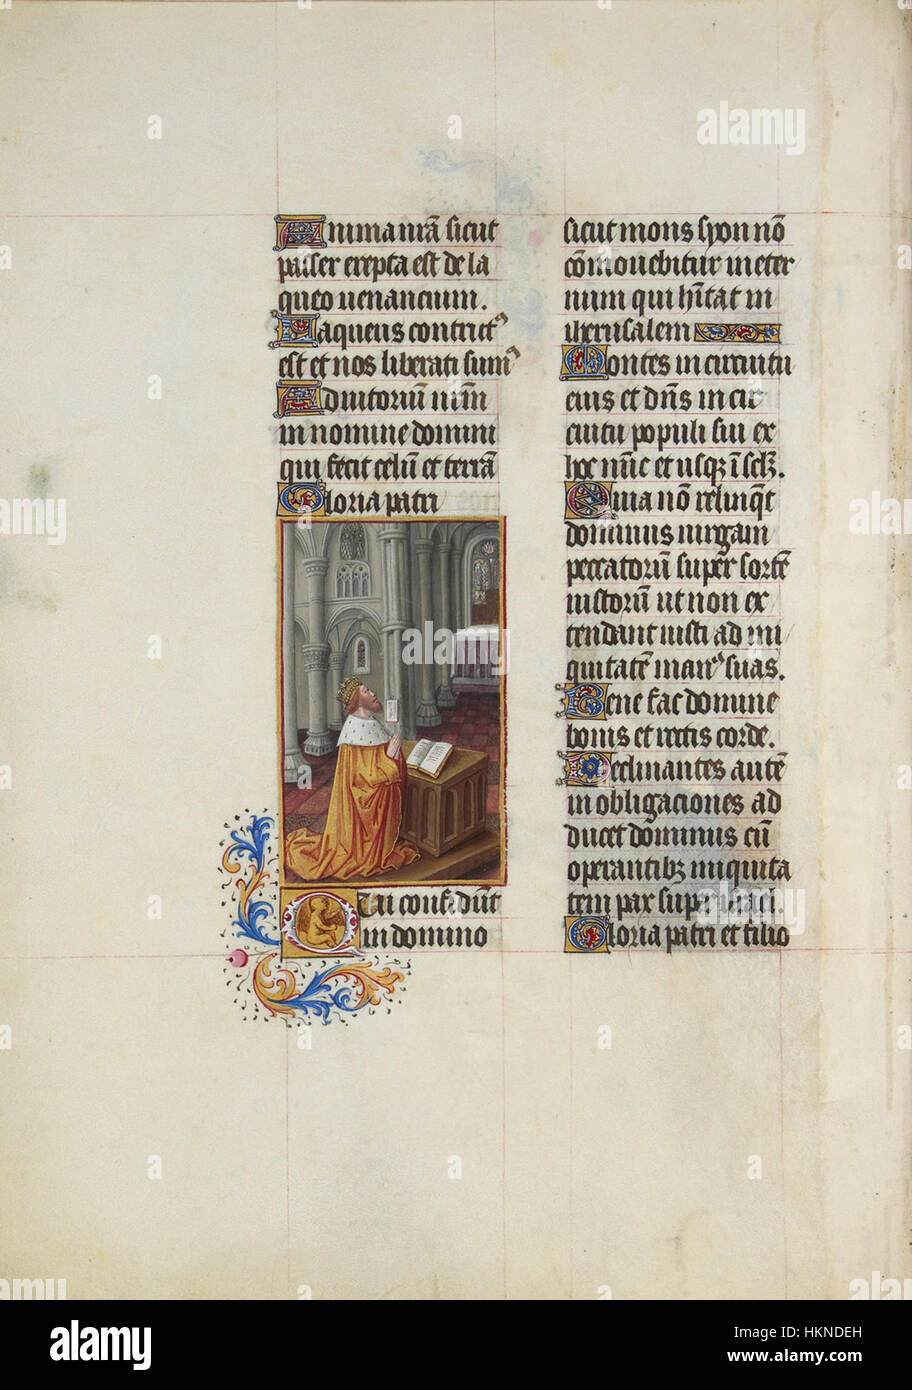 Anima nr̄a sicut
passer erepta est de la
queo venancium.
Laqueus contrictꝰ
est et nos liberati sumꝰ
Adiutoriū nr̄m
in nomine domini
qui fecit celū et terrā
Gloria patri
Qui confidūt
in domino
sicut mons syon nō
cōmovebitur in eter
num qui hītat in
iherusalem
Montes in circuitu
eius et dn̄s in cir
cuitu populi sui ex
hoc nūc et usqꝫ ī sclꝫ.
Quia nō relinqͭ
dominus virgam
peccatorū super sortē
iustorum ut non ex
tendant iusti ad ini
quitatē manꝰ suas.
Bene fac domine
bonis et rectis corde.
Declinantes autē
in obligaciones ad
ducet dominus cū
operantibꝫ iniquita
tem pax super israel.
Gloria patri et filio
alamy
a
alamy
Image ID: HKNDEH
www.alamy.com